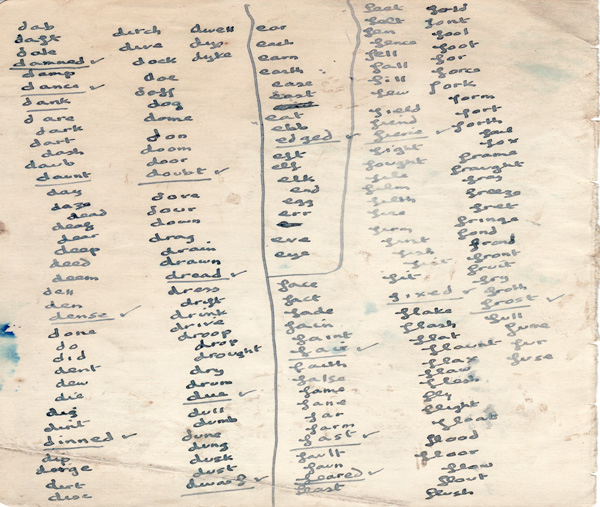 dab
daft
dale
damned ✓
damp
dance ✓
dank
dare
dark
dart
dash
daub
daunt
day
daze
dead
deaf
dear
deep
deed
deem
dell
den
dense ✓
done
do
did
dent
dew
die
dig
dint
dinned ✓
dip
dirge
dirt
disc
ditch
dive
dock
doe
doff
dog
dome
don
doom
door
doubt ✓
dove
dour
down
drag
drain
drawn
dread ✓
dress
drift
drink
drive
droop
drop
drought
dry
drum
due ✓
dull
dumb
dune
dung
dusk
dust
dwarf ✓
dwell
dyke
ear
each
earn
earth
ease
east
eat
ebb
edged ✓
eft
elf
elk
end
egg
err
eve
eye
face
fact
fade
fain
faint
fair ✓
faith
false
fame
fane
far
farm
fast ✓
fault
fawn
feared ✓
feast
feet
felt
fen
fence
fell
fall
fill
few
field
fiend
fight
fought
file
film
filth
fire
firm
fish
fist
fit
fixed ✓
flake
flash
flat
flaunt
flax
flaw
flesh
fly
flight
float
flood
floor
flow
flout
flush
fold
font
fool
foot
for
force
fork
form
fort
forth
foul
fox
frame
fraught
fray
freeze
fret
fringe
fond
frond
front
fruit
fry
froth
frost ✓
full
fume
fur
fuse